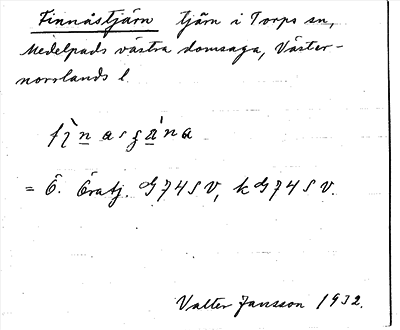 Finnåstjärn tjärn i Torps sn,
Medelpads västra domsaga, Väster-
norrlands l.
= Ö. Öratj. G74SV, k G74SV.
Valter Jansson 1932.